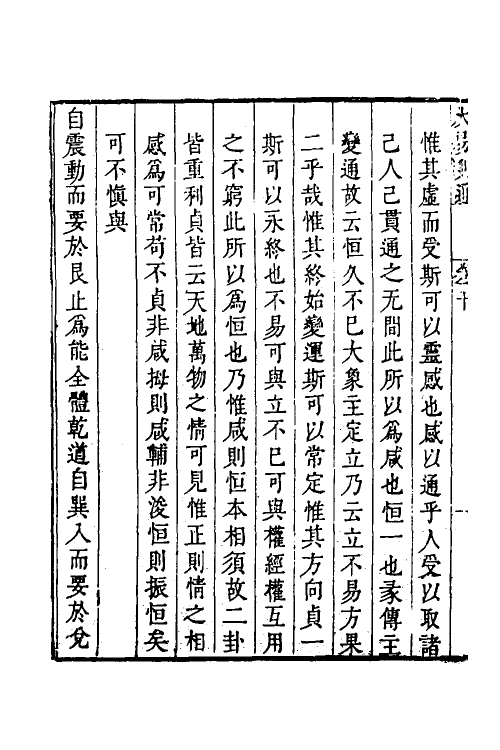 惟其虛而受斯可以靈感也感以通乎人受以取諸
己人己貫通之无間此所以爲咸也恒一也彖傳主
變通故云恒久不已大象主定立乃云立不易方果
二乎哉惟其終始變運斯可以常定惟其方向貞一
斯可以永終也不易可與立不已可與權經權互用
之不窮此所以爲恒也乃惟咸則恒本相須故二卦
皆重利貞皆云天地萬物之情可見惟正則情之相
感爲可常苟不貞非咸拇則咸輔非浚恒則振恒矣
可不愼與
自震動而要於艮止爲能全體乾道自巽入而要於兌